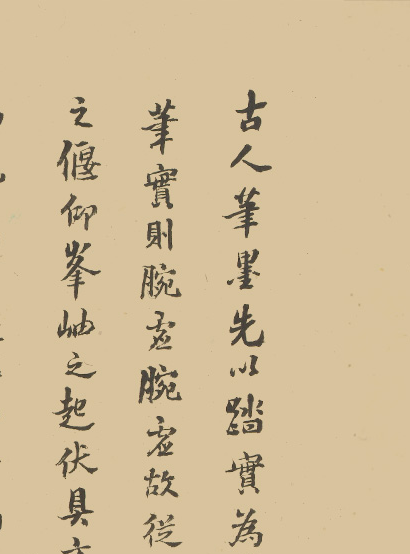 古人筆墨先以踏實為
筆實則腕虛腕虛故從
之偃仰峯岫之起伏具